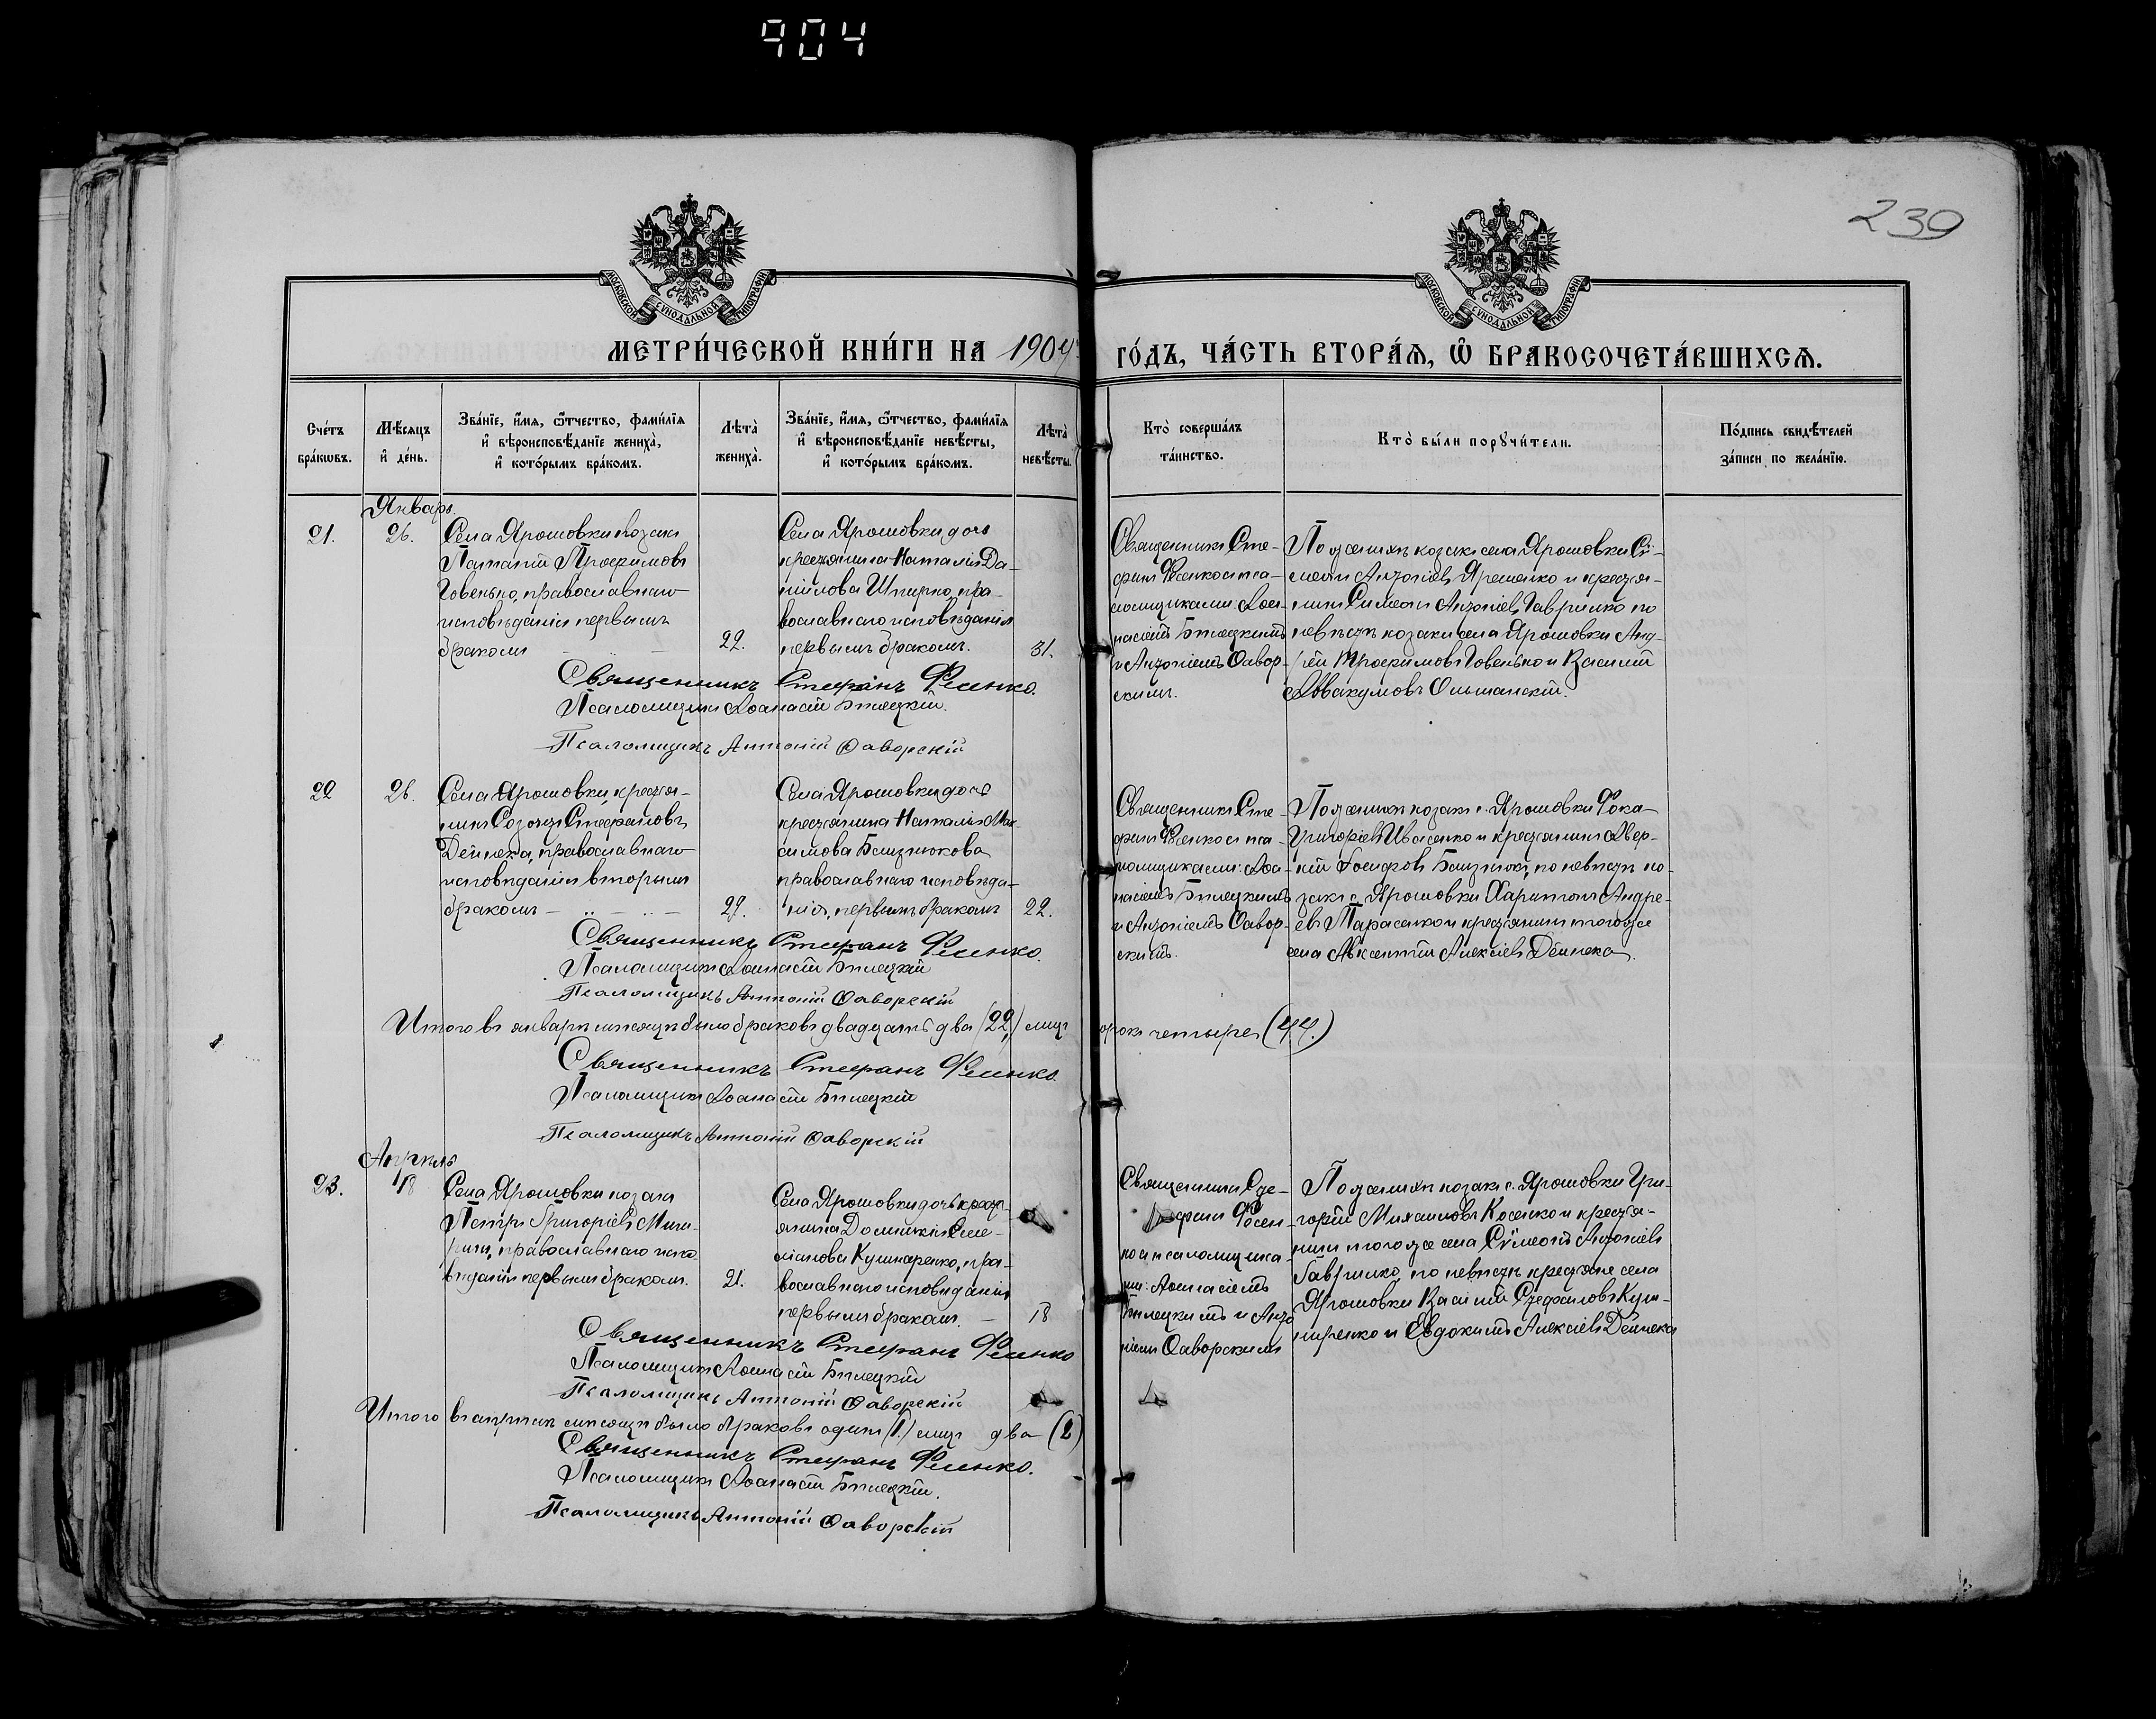 904
239
МОСКОВСКОЙ СѴНОДАЛЬНОЙ ТИПОГРАФІИ
МОСКОВСКОЙ СѴНОДАЛЬНОЙ ТИПОГРАФІИ
МЕТРИ́ЧЕСКОЙ КНИ́ГИ НА 1904 ГО́ДЪ, ЧА́СТЬ ВТОРА́Ѧ, Ѡ҆ БРАКОСОЧЕТА́ВШИХСѦ.
Сче́тъ бра́кѡвъ.
Мѣ́сяцъ и҆ де́нь.
Зва́нїе, и҆́мѧ, ѻ҆́тчество, фами́лїѧ и҆ вѣроисповѣ́данїе жениха̀, и҆ кото́рымъ бра́комъ.
Лѣта̀ жениха̀.
Зва́нїе, и҆́мѧ, ѻ҆́тчество, фами́лїѧ и҆ вѣроисповѣ́данїе невѣ́сты, и҆ кото́рымъ бра́комъ.
Лѣта̀ невѣ́сты.
Кто̀ соверша́лъ та́инство.
Кто̀ бы́ли порꙋчи́тели.
По́дпись свидѣ́телей за́писи по жела́нїю.
Январь.
21.
26.
Села Ярошовки козакъ
Трофимовъ
Говенько, православнаго
исповѣданія первымъ
бракомъ
22.
Села Ярошовки дочь
крестьянина Наталія Да-
ніилова Шпирко, пра-
вославнаго исповѣданія
первымъ бракомъ.
31.
Священникъ Сте-
фанъ Фесенко с пса-
ломщиками: Аѳа-
насіемъ Билецкимъ
и Антоніемъ Ѳавор-
скимъ.
По женихѣ козакъ села Ярошовки Си-
меонъ Антоніевъ Ярешенко и крестья-
нинъ Симеонъ Антоніевъ Гаврилко по
невѣстѣ козаки села Ярошовки Анд-
рей Трофимовъ Говенько и Василій
Аввакумовъ Ольшанскій.
Священникъ Стефанъ Фесенко.
Псаломщикъ Аѳанасій Билецкій.
Псаломщикъ Антоній Ѳаворскій
22
26.
Села Ярошовки, крестья-
нинъ Созонтъ Стефановъ
Дейнека, православнаго
исповѣданія вторымъ
бракомъ
27.
Села Ярошовки дочь
крестьянина Наталья Мак-
симова Близнюкова
православнаго исповѣда-
нія, первымъ бракомъ
22.
Священникъ Сте-
фанъ Фесенко с пса-
ломщиками: Аѳа-
насіемъ Билецкимъ
и Антоніемъ Ѳавор-
скимъ.
По женихѣ козакъ с. Ярошовки Фока
Григоріевъ Ивасенко и крестьянинъ Авер-
кій Іосифовъ Близнюкъ, по невѣстѣ ко-
закъ с. Ярошовки Харитонъ Андре-
евъ Тарасенко и крестьянинъ того же
села Авксентій Алексіевъ Дейнека.
Священникъ Стефанъ Фесенко.
Псаломщикъ Аѳанасій Билецкій
Псаломщикъ Антоній Ѳаворскій
Итого въ январѣ мѣсяцѣ было браковъ двадцать два (22) лицъ сорокъ четыре (44.)
Священникъ Стефанъ Фесенко.
Псаломщикъ Аѳанасій Билецкій
Псаломщикъ Антоній Ѳаворскій
Апрѣль
23.
18
Села Ярошовки козакъ
Петръ Григоріевъ
православнаго испо-
вѣданія первымъ бракомъ.
21.
Села Ярошовки дочь крест-
янина Домникія Сте-
фанова Кушнаренко, пра-
вославнаго исповѣданія
первымъ бракомъ.
18
Священникъ Сте-
фанъ Фесен-
ко с псаломщика-
ми: Аѳанасіемъ
Билецкимъ и Анто
ніемъ Ѳаворскимъ
По женихѣ козакъ с. Ярошовки Гри-
горій Михаиловъ Косенко и крестья-
нинъ того же села Сумеонъ Антоніевъ
Гаврилко, по невѣстѣ крестьяне села
Ярошовки Василій Стефановъ Куш-
наренко и Евдокимъ Алексіевъ Дейнека
Священникъ Стефанъ Фесенко
Псаломщикъ Аѳанасій Билецкій
Псаломщикъ Антоній Ѳаворскій
Итого въ апрѣлѣ мѣсяцѣ было браковъ одинъ (1.) лицъ два (2)
Священникъ Стефанъ Фесенко.
Псаломщикъ Аѳанасій Билецкій.
Псаломщикъ Антоній Ѳаворскій